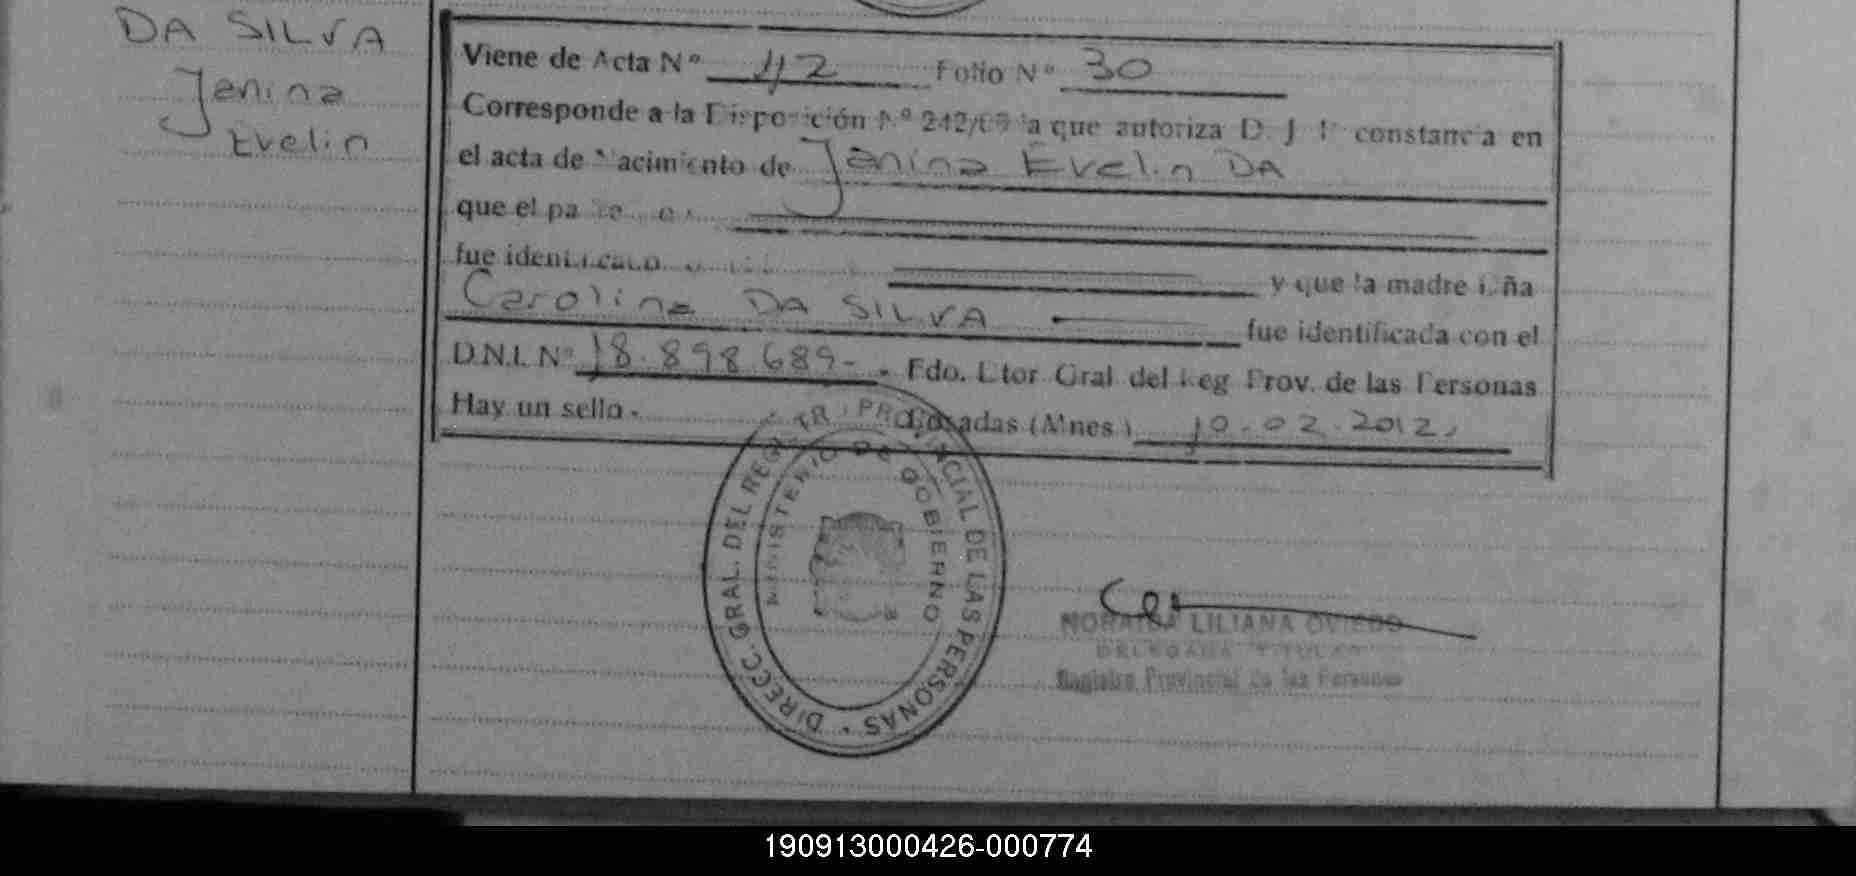 DA SILVA
Janina
Evelin
Viene de Acta Nº 42 Folio Nº 30
Corresponde a la Disposición Nº 242/ la que autoriza D. J. constancia en
el acta de Nacimiento de Janina Evelin DA
que el
fue identificado y que la madre
Carolina DA SILVA fue identificada con el
D.N.I. Nº 18.898.689-. Fdo. Dtor Gral del Reg Prov. de las Personas
Hay un sello. Posadas (Mnes) 10.02.2012.
DIRECC. GRAL. DEL REG PROVINCIAL DE LAS PERSONAS
MINISTERIO DE GOBIERNO
LILIANA OVIEDO
DELEGADA TITULAR
Registro Provincial de las Personas
190913000426-000774